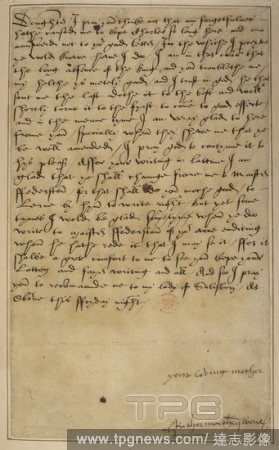 Doughter I pray you thinke not that any forgetfulnes
hathe caused me to kepe Charles so long here and
answered not to yor good letter In the whiche I perceyve
ye wold knowe howe I do / I am in that case that
the long absence of the king and you troublethe me
my helthe is metely good and I trust in god he that
sent me the last dothe it to the best and woll
shortly torne it to the fyrst to come to good effecte
and in the meane tyme I am veray glad to here
frome you specially when they shewe me that ye
be well amended / I pray god to contynue it to
hys plesr As for your writing in lattine I am
glad that ye shall chaunge frome me to Maister
ffederston for that shall do you moche good to
lerne by hym to write right but yet some
tymes I wolde be glad when ye do
write to maister ffederston of yor owne enditing
when he hathe rede it that I may se it ffor it
shalbe a gret comfort to me to see you kepe your
latten and fayer writing and all And so I pray
you to recommaunde me to my lady of Salisbury At
Oborne this ffryday night
your loving mother
Katherine the qwene
TPG
www.tpgnews.com / 達志影像